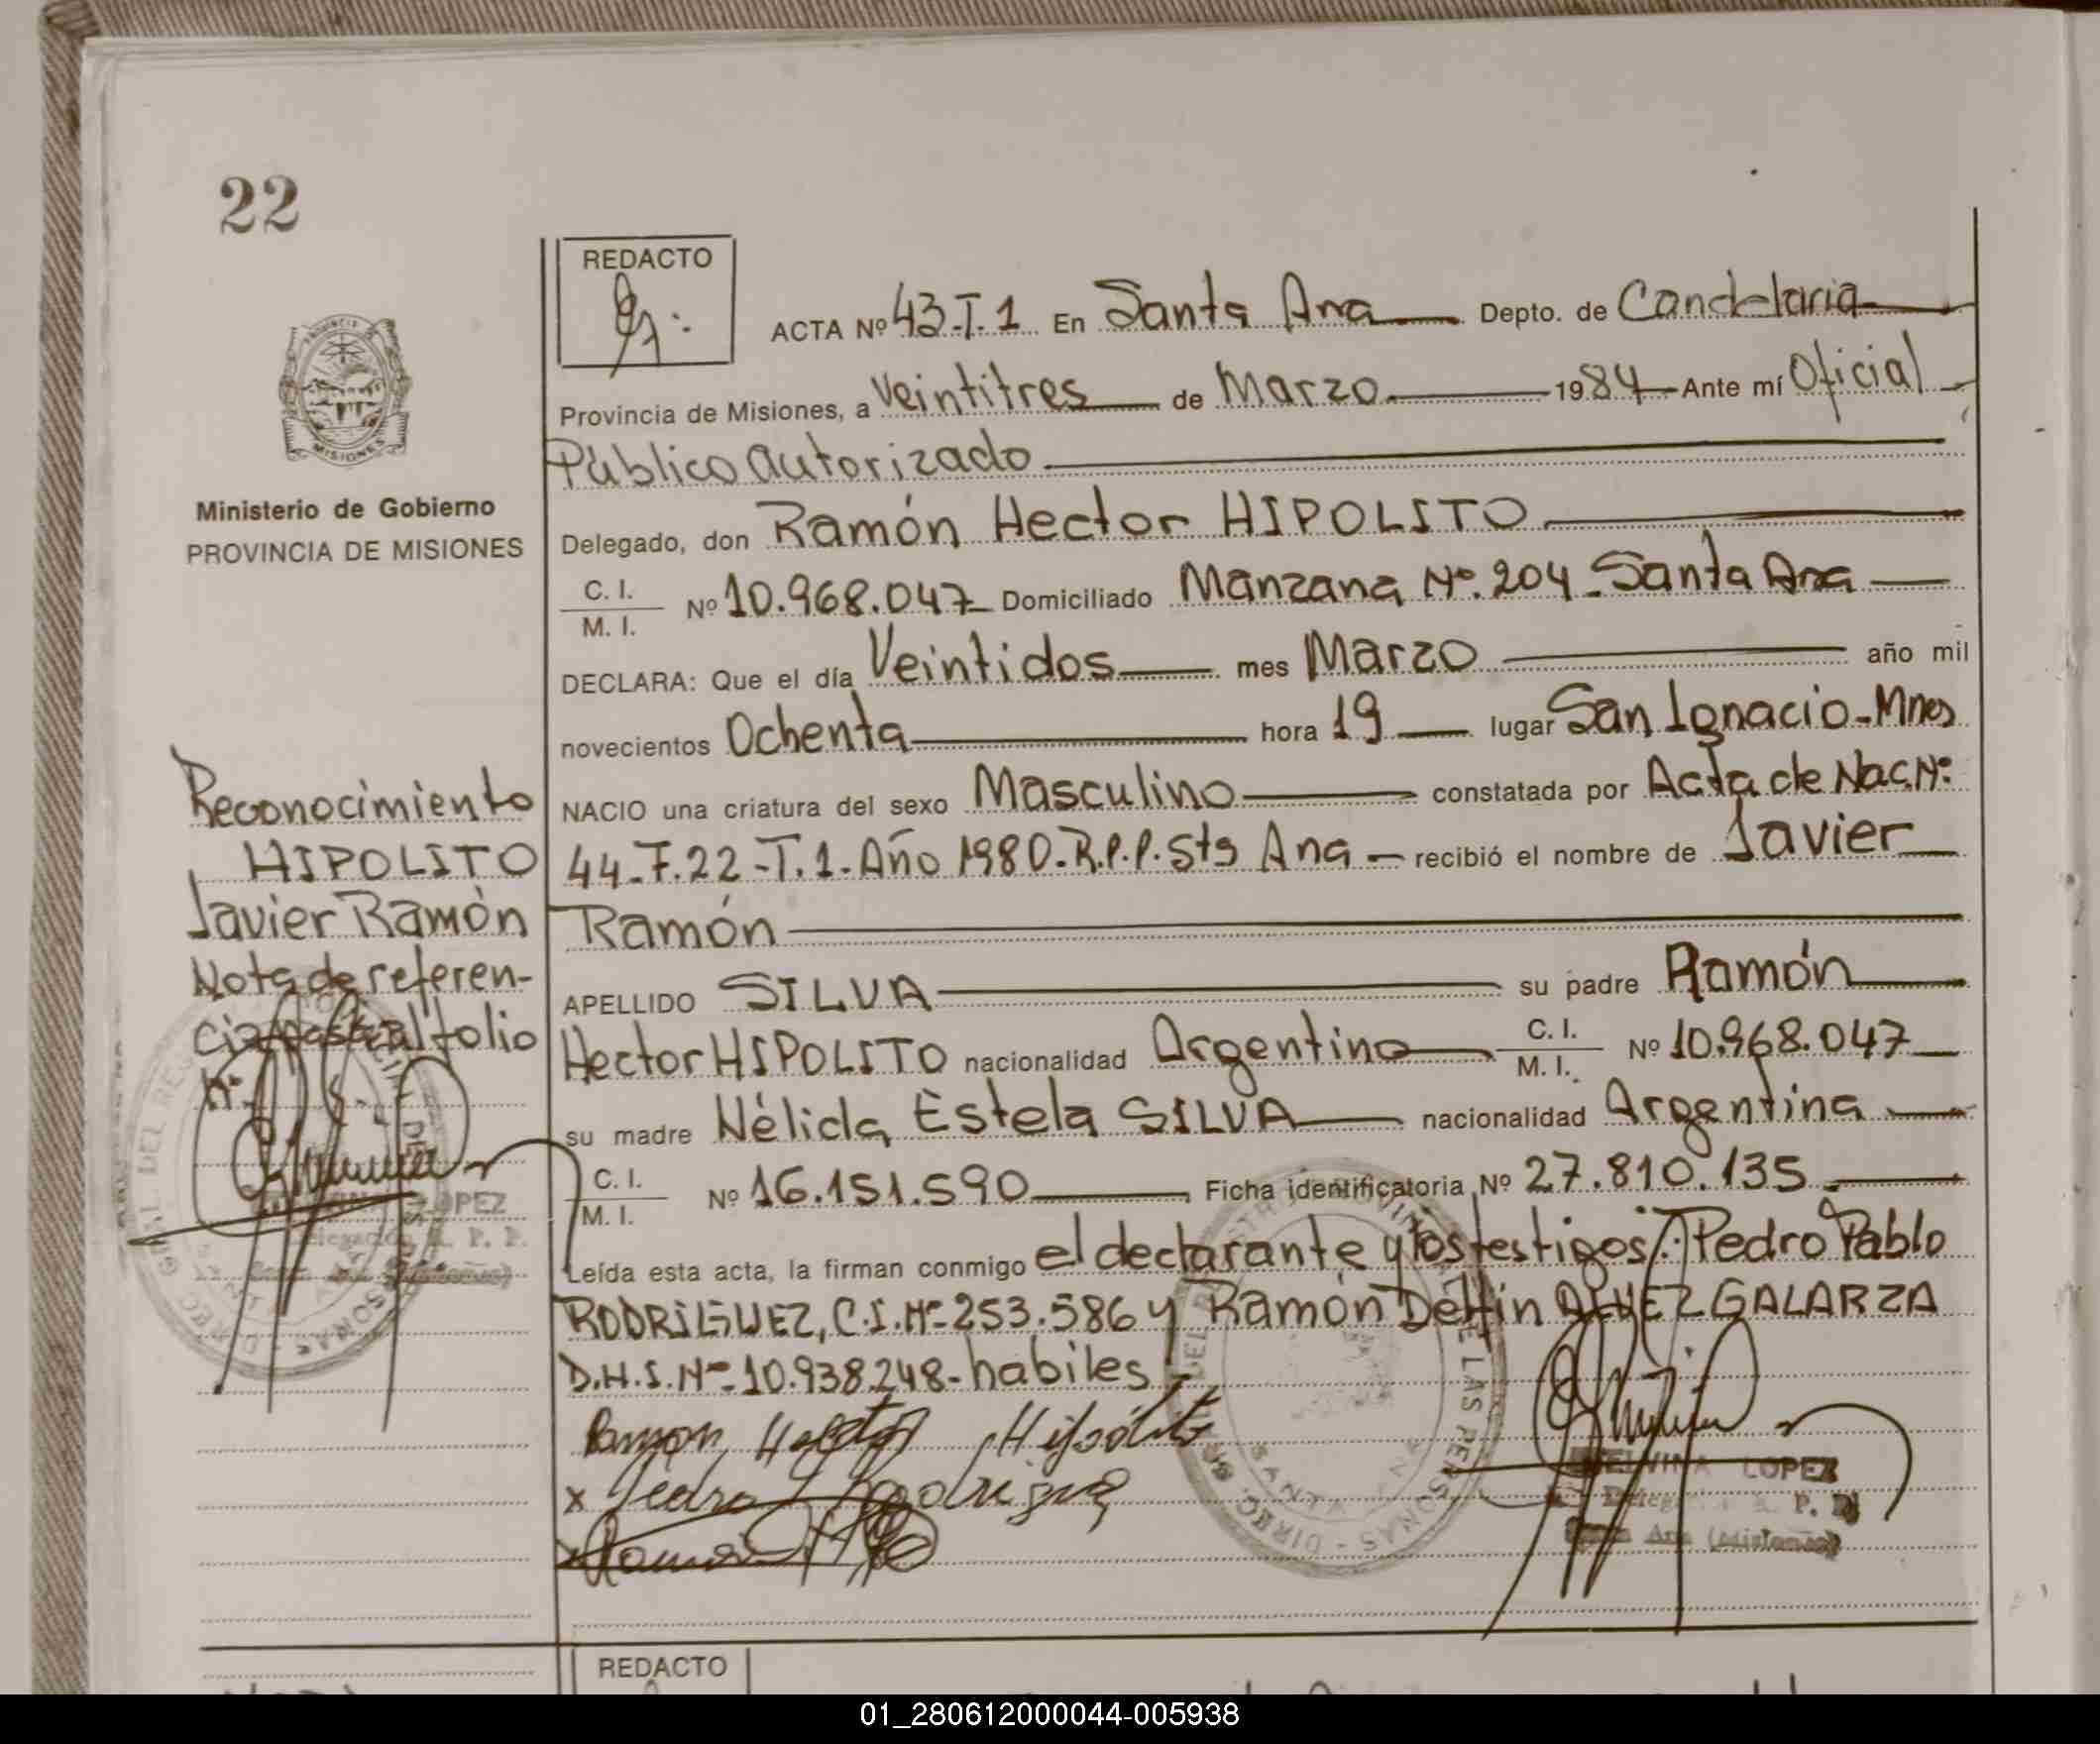 22
REDACTO
ACTA Nº 43-T.1 En Santa Ana Depto. de Candelaria
Provincia de Misiones, a Veintitres de Marzo 1984 Ante mí Oficial
Público autorizado
Delegado, don Ramón Hector HIPOLITO
C. I. / M. I. Nº 10.968.047 Domiciliado Manzana Nº. 204 - Santa Ana
DECLARA: Que el día Veintidos mes Marzo año mil
novecientos Ochenta hora 19 lugar San Ignacio - Mnes
NACIO una criatura del sexo Masculino constatada por Acta de Nac. Nº
44-F.22-T.1-Año 1980-R.P.P. Sta Ana recibió el nombre de Javier
Ramón
APELLIDO SILVA su padre Ramón
Hector HIPOLITO nacionalidad Argentino C. I. / M. I. Nº 10.968.047
su madre Nélida Estela SILVA nacionalidad Argentina
C. I. / M. I. Nº 16.151.590 Ficha identificatoria Nº 27.810.135
Leída esta acta, la firman conmigo el declarante y los testigos: Pedro Pablo
RODRIGUEZ, C.I. Nº 253.586 y Ramón Delfin ALVEZ GALARZA
D.N.I. Nº 10.938.248 - habiles
Ramon Hector Hipólito
x Pedro Rodriguez
Ramon
PROVINCIA DE
MISIONES
Ministerio de Gobierno
PROVINCIA DE MISIONES
Reconocimiento
HIPOLITO
Javier Ramón
Nota de referen-
cia pasa al folio
Nº
LOPEZ
Delegación R. P. P.
DIREC. GRAL DEL REGISTRO PROVINCIAL DE LAS PERSONAS
SANTA ANA
ELVINA LOPEZ
Delegada R. P. P.
Santa Ana (Misiones)
REDACTO
01_280612000044-005938